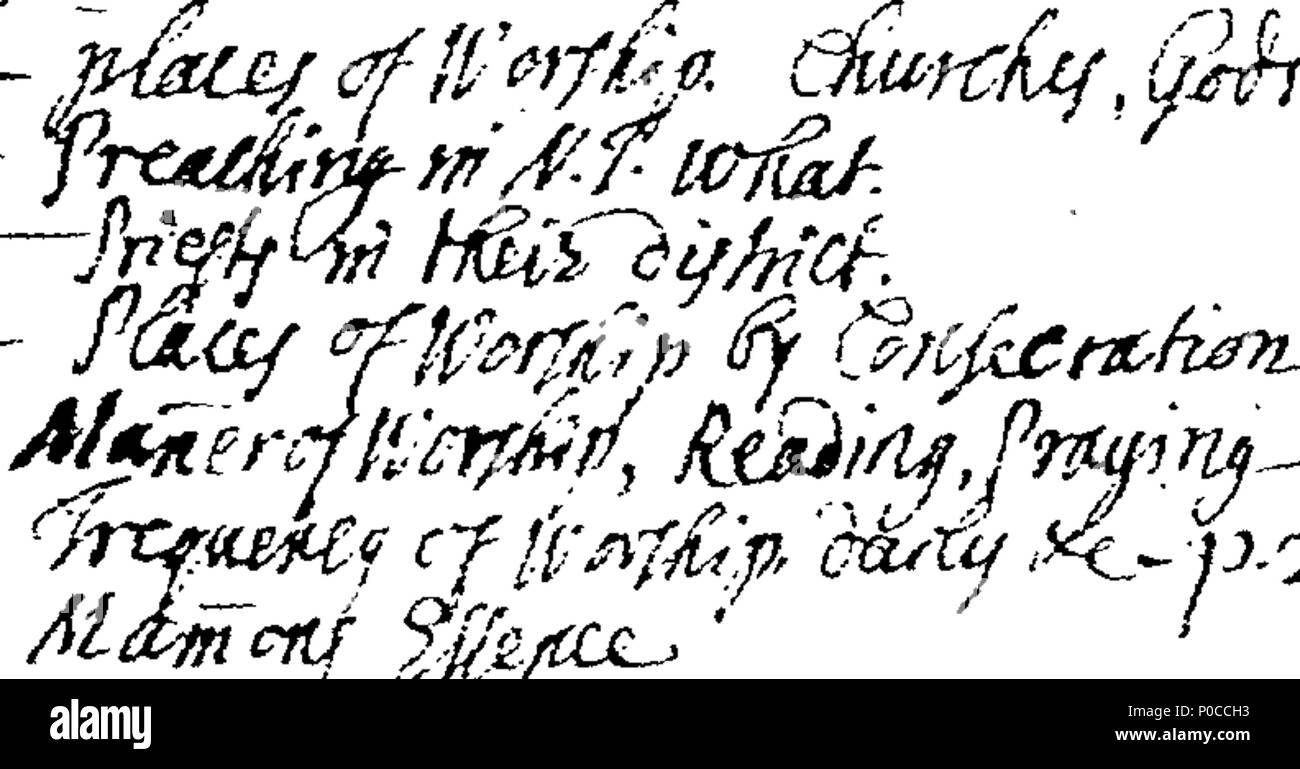 places of Worship. Churches, Gods
Preaching in N.T. What.
Priests in their district.
Places of Worship by Consecration
Man̄er of Worship, Reading, Praying
Frequency of Worship, daily &c - p.
Mam̄ons Essence
alamy
Image ID: P0CCH3
www.alamy.com